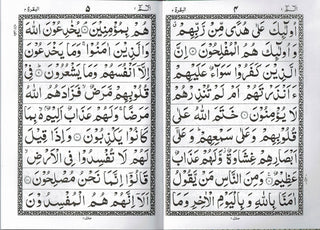 البقرة ٢
٤
الٓمّٓ ١
اُولٰٓئِكَ عَلٰى هُدًى مِّنْ رَّبِّهِمْ
وَاُولٰٓئِكَ هُمُ الْمُفْلِحُوْنَ ۝ اِنَّ
الَّذِيْنَ كَفَرُوْا سَوَآءٌ عَلَيْهِمْ
ءَاَنْذَرْتَهُمْ اَمْ لَمْ تُنْذِرْهُمْ
لَا يُؤْمِنُوْنَ ۝ خَتَمَ اللّٰهُ عَلٰى
قُلُوْبِهِمْ وَعَلٰى سَمْعِهِمْ ؕ وَعَلٰٓى
اَبْصَارِهِمْ غِشَاوَةٌ وَّلَهُمْ عَذَابٌ
عَظِيْمٌ ۝ وَمِنَ النَّاسِ مَنْ يَّقُوْلُ
اٰمَنَّا بِاللّٰهِ وَبِالْيَوْمِ الْاٰخِرِ وَمَا
الٓمّٓ ١
٥
البقرة ٢
هُمْ بِمُؤْمِنِيْنَ ۝ يُخٰدِعُوْنَ اللّٰهَ
وَالَّذِيْنَ اٰمَنُوْا ۚ وَمَا يَخْدَعُوْنَ
اِلَّآ اَنْفُسَهُمْ وَمَا يَشْعُرُوْنَ ۝ فِيْ
قُلُوْبِهِمْ مَّرَضٌ ۙ فَزَادَهُمُ اللّٰهُ
مَرَضًا ۚ وَلَهُمْ عَذَابٌ اَلِيْمٌۢ ۙ بِمَا
كَانُوْا يَكْذِبُوْنَ ۝ وَاِذَا قِيْلَ
لَهُمْ لَا تُفْسِدُوْا فِى الْاَرْضِ ۙ
قَالُوْٓا اِنَّمَا نَحْنُ مُصْلِحُوْنَ ۝
اَلَآ اِنَّهُمْ هُمُ الْمُفْسِدُوْنَ